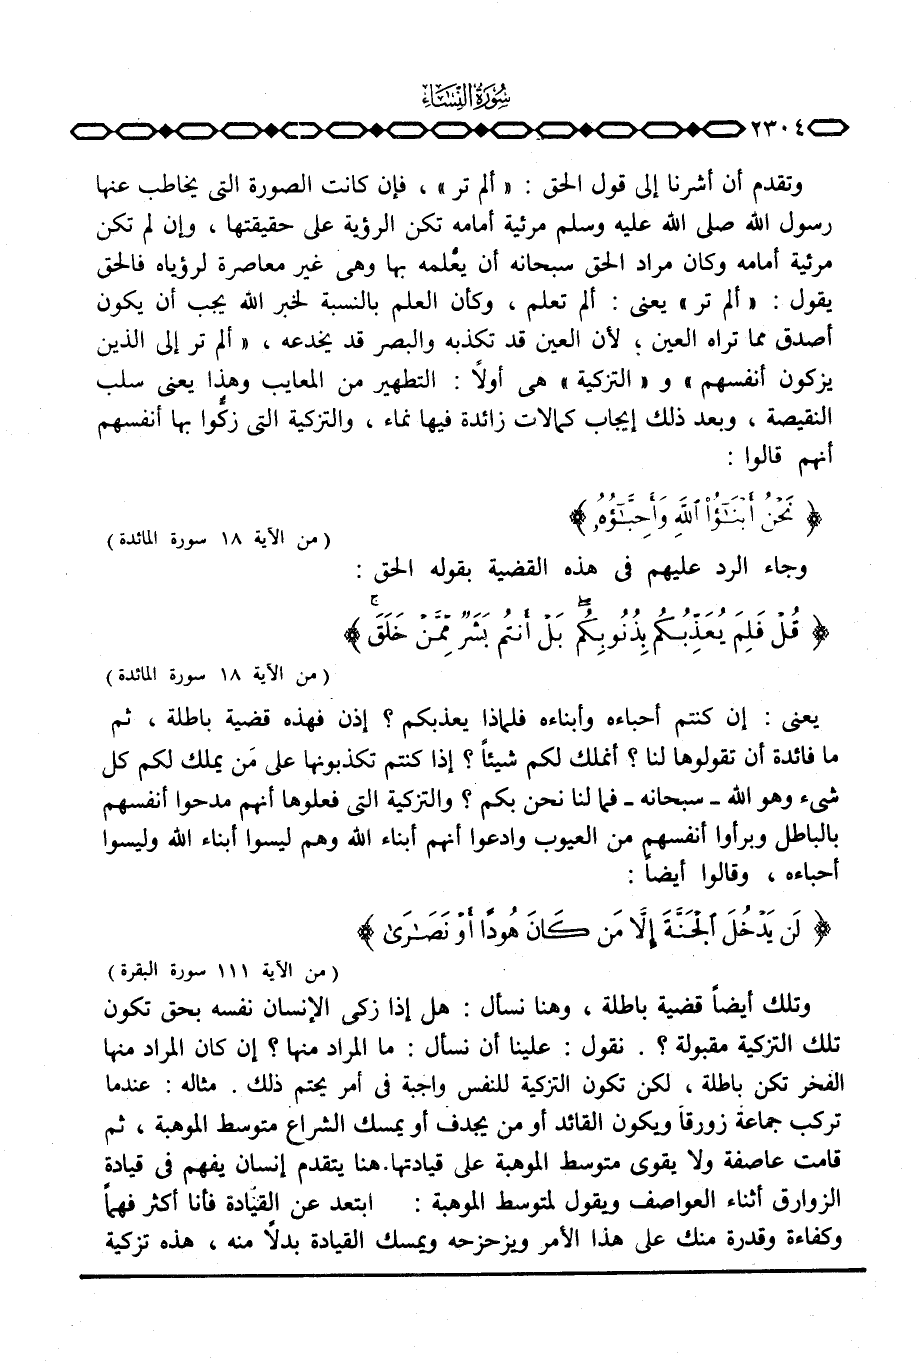 سورة النساء
٢٣٠٤
وتقدم أن أشرنا إلى قول الحق : « ألم تر » ، فإن كانت الصورة التى يخاطب عنها
رسول الله صلى الله عليه وسلم مرئية أمامه تكن الرؤية على حقيقتها ، وإن لم تكن
مرئية أمامه وكان مراد الحق سبحانه أن يعُلمه بها وهى غير معاصرة لرؤياه فالحق
يقول : « ألم تر » يعنى : ألم تعلم ، وكأن العلم بالنسبة لخبر الله يجب أن يكون
أصدق مما تراه العين ؛ لأن العين قد تكذبه والبصر قد يخدعه ، « ألم تر إلى الذين
يزكون أنفسهم » و « التزكية » هى أولاً : التطهير من المعايب وهذا يعنى سلب
النقيصة ، وبعد ذلك إيجاب كمالات زائدة فيها نماء ، والتزكية التى زكُّوا بها أنفسهم
أنهم قالوا :
﴿ نَحْنُ أَبْنَٰٓؤُا۟ ٱللَّهِ وَأَحِبَّٰٓؤُهُۥ ﴾
( من الآية ١٨ سورة المائدة )
وجاء الرد عليهم فى هذه القضية بقوله الحق :
﴿ قُلْ فَلِمَ يُعَذِّبُكُم بِذُنُوبِكُمۖ بَلْ أَنتُم بَشَرٌ مِّمَّنْ خَلَقَۚ ﴾
( من الآية ١٨ سورة المائدة )
يعنى : إن كنتم أحباءه وأبناءه فلماذا يعذبكم ؟ إذن فهذه قضية باطلة ، ثم
ما فائدة أن تقولوها لنا ؟ أنملك لكم شيئاً ؟ إذا كنتم تكذبونها على مَن يملك لكم كل
شىء وهو الله ـ سبحانه ـ فما لنا نحن بكم ؟ والتزكية التى فعلوها أنهم مدحوا أنفسهم
بالباطل وبرأوا أنفسهم من العيوب وادعوا أنهم أبناء الله وهم ليسوا أبناء الله وليسوا
أحباءه ، وقالوا أيضاً :
﴿ لَن يَدْخُلَ ٱلْجَنَّةَ إِلَّا مَن كَانَ هُودًا أَوْ نَصَٰرَىٰ ﴾
( من الآية ١١١ سورة البقرة )
وتلك أيضاً قضية باطلة ، وهنا نسأل : هل إذا زكى الإنسان نفسه بحق تكون
تلك التزكية مقبولة ؟ . نقول : علينا أن نسأل : ما المراد منها ؟ إن كان المراد منها
الفخر تكن باطلة ، لكن تكون التزكية للنفس واجبة فى أمر يحتم ذلك . مثاله : عندما
تركب جماعة زورقاً ويكون القائد أو من يجدف أو يمسك الشراع متوسط الموهبة ، ثم
قامت عاصفة ولا يقوى متوسط الموهبة على قيادتها.هنا يتقدم إنسان يفهم فى قيادة
الزوارق أثناء العواصف ويقول لمتوسط الموهبة : ابتعد عن القيادة فأنا أكثر فهماً
وكفاءة وقدرة منك على هذا الأمر ويزحزحه ويمسك القيادة بدلاً منه ، هذه تزكية